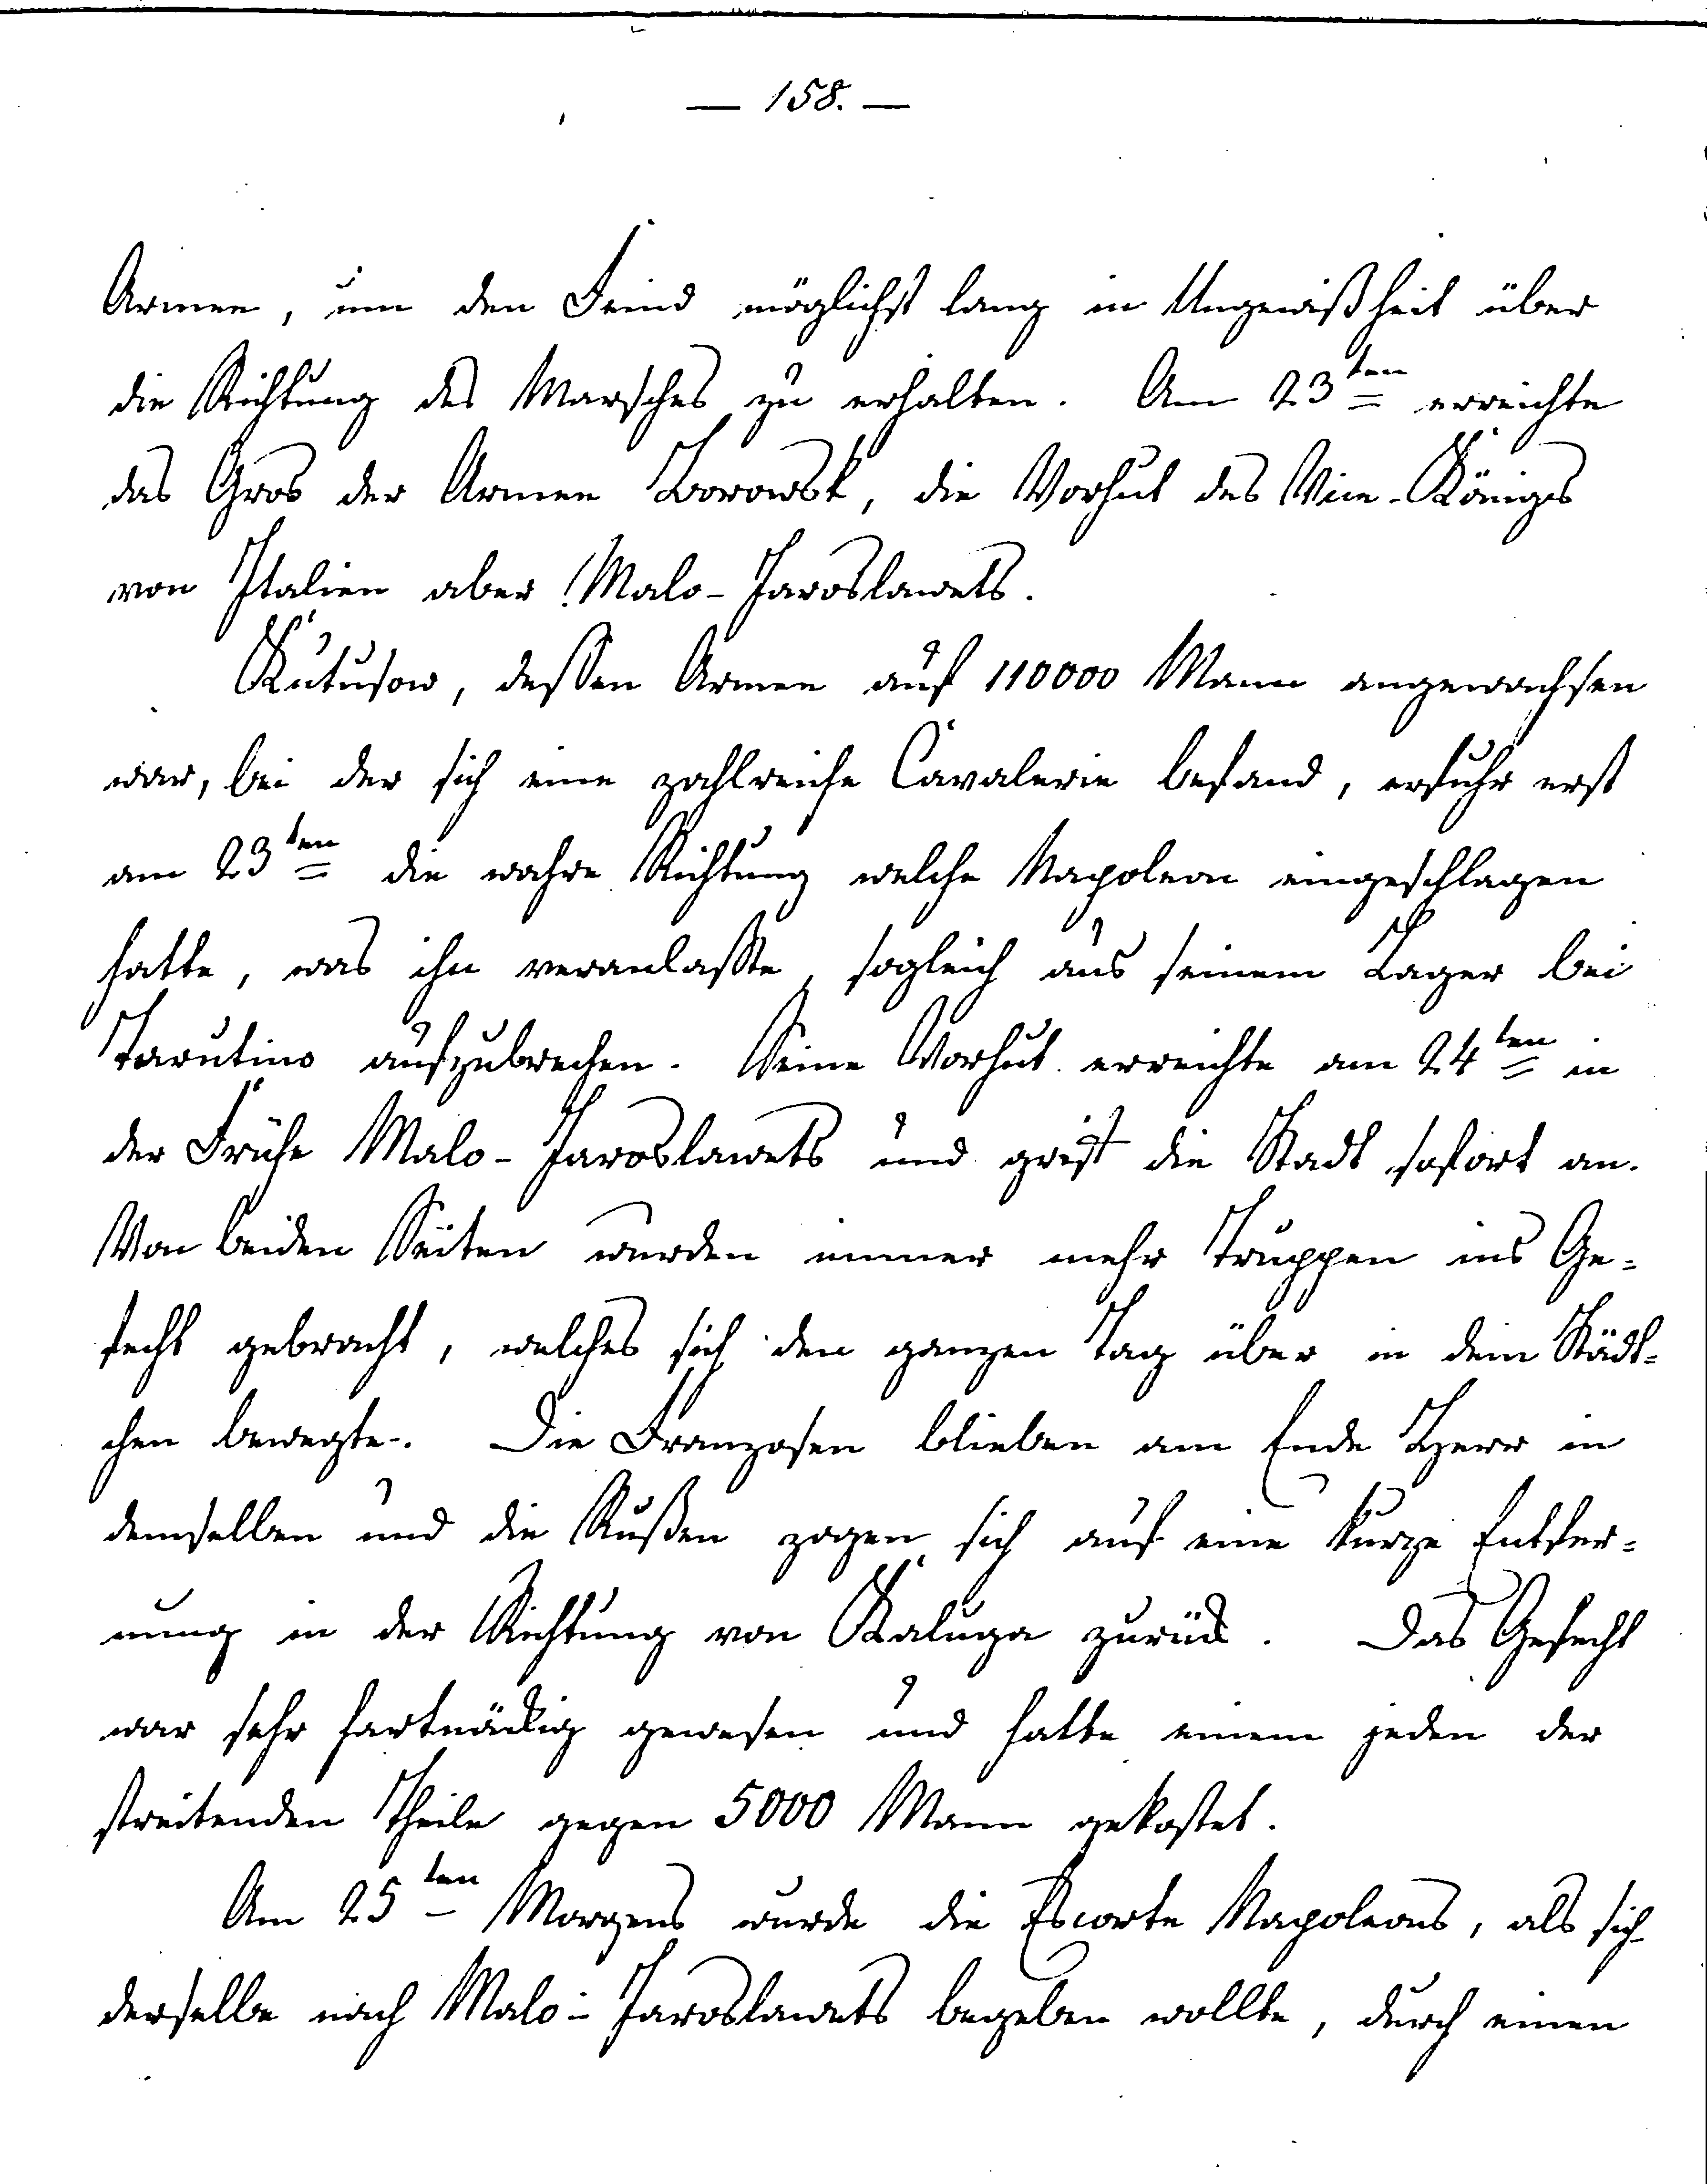 — 158. —
Armee, um den Feind möglichst lang in Ungewißheit über
die Richtung des Marsches zu erhalten. Am 23ten erreichte
das Gros der Armee Borowsk, die Vorhut des Vice-Königs
von Italien aber Malo-Jaroslawets.
Kutusow, dessen Armee auf 110000 Mann angewachsen
war, bei der sich eine zahlreiche Cavalerie befand, erfuhr erst
am 23ten die wahre Richtung welche Napoleon eingeschlagen
hatte, was ihn veranlasste, sogleich aus seinem Lager bei
Tarutino aufzubrechen. Seine Vorhut erreichte am 24ten in
der Frühe Malo-Jaroslawets und grift die Stadt sofort an.
Von beiden Seiten wurden immer mehr Truppen ins Ge=
fecht gebracht, welches sich den ganzen Tag über in dem Städt=
chen bewegte. Die Franzosen blieben am Ende Herr in
demselben und die Rußen zogen sich auf eine kurze Entfer=
nung in der Richtung von Kaluga zurück. Das Gefecht
war sehr hartnäckig gewesen und hatte einem jeden der
streitenden Theile gegen 5000 Mann gekostet.
Am 25ten Morgens wurde die Escorte Napoleons, als sich
derselbe nach Malo-Jaroslawets begeben wollte, durch einen